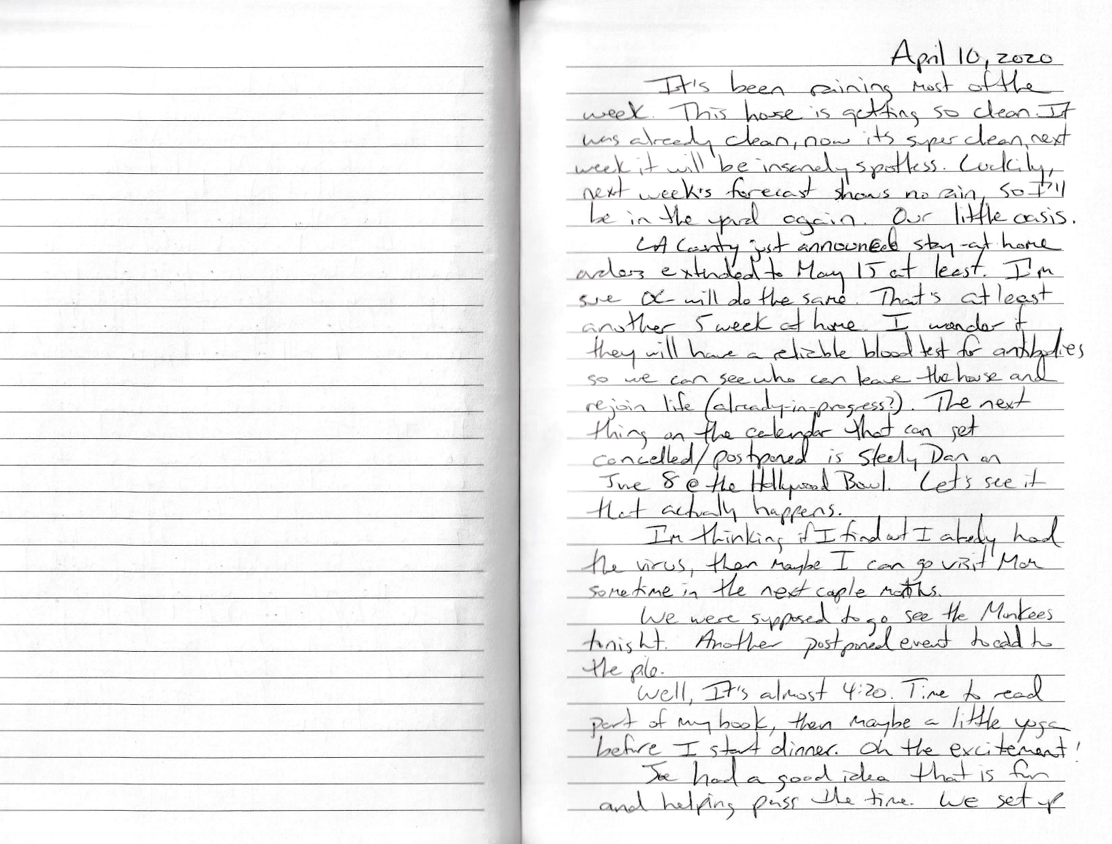 April 10, 2020
It's been raining most of the
week. This house is getting so clean. It
was already clean, now it's super clean, next
week it will be insanely spotless. Luckily,
next week's forecast shows no rain, so I'll
be in the yard again. Our little oasis.
LA County just announced stay-at home
orders extended to May 15 at least. I'm
sure OC will do the same. That's at least
another 5 week at home. I wonder if
they will have a reliable blood test for antibodies
so we can see who can leave the house and
rejoin life (already-in-progress?). The next
thing on the calendar that can get
cancelled/postponed is Steely Dan on
June 8 @ the Hollywood Bowl. Let's see if
that actually happens.
I'm thinking if I find out I already had
the virus, then maybe I can go visit Mom
sometime in the next couple months.
We were supposed to go see the Monkees
tonight. Another postponed event to add to
the pile.
Well, It's almost 4:20. Time to read
part of my book, then maybe a little yoga
before I start dinner. Oh the excitement!
Joe had a good idea that is fun
and helping pass the time. We set up